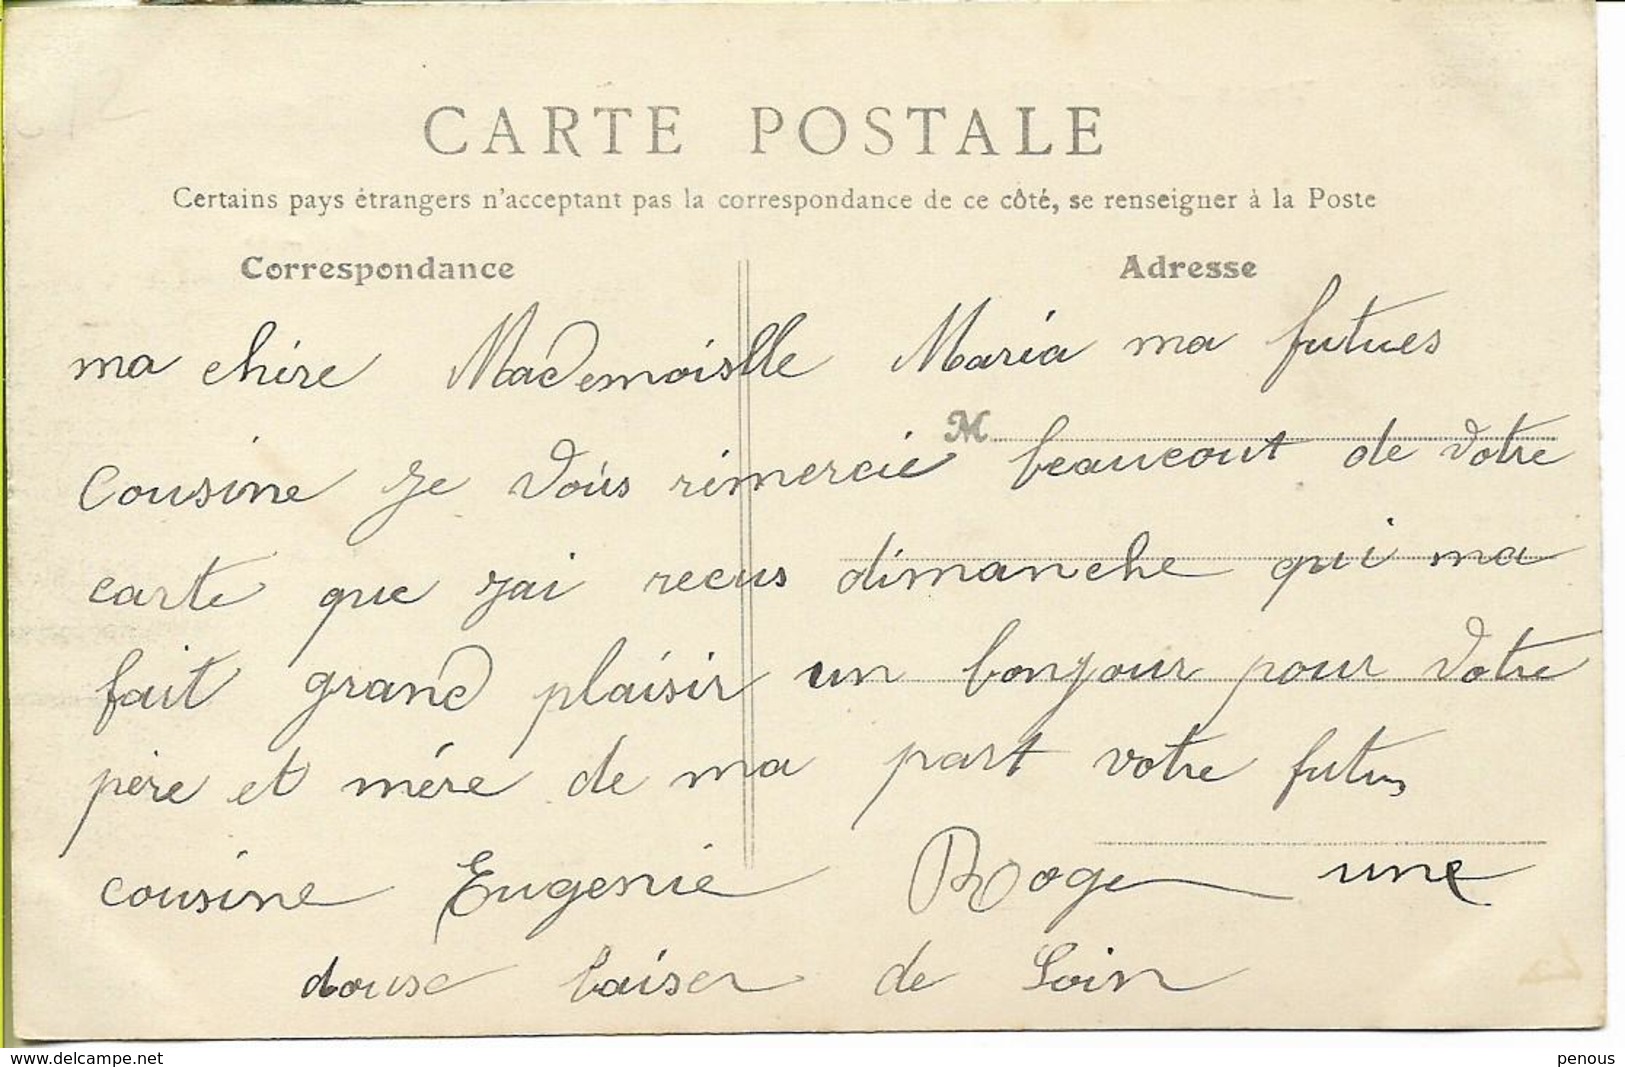 CARTE POSTALE
Certains pays étrangers n'acceptant pas la correspondance de ce côté, se renseigner à la Poste
Correspondance Adresse
ma chire Mademoislle Maria ma futues
M
Cousine Je Vous rimercie beaucout de Votre
carte que Jai recus dimanche qui ma
fait grand plaisir un bonjour pour Votre
père et mére de ma part votre futus
cousine Eugenie Roger une
douse baiser de Loin
www.delcampe.net penous